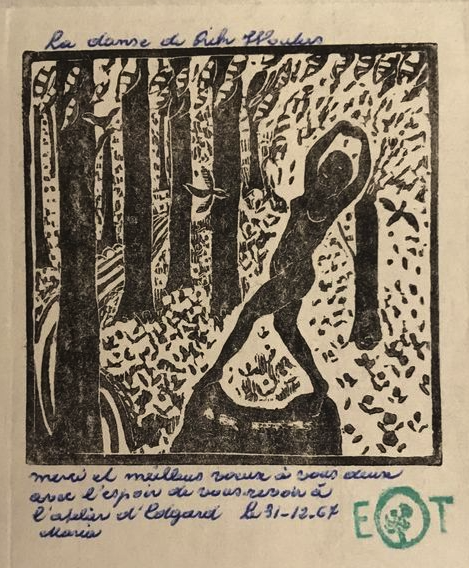 La danse de Rik Wouters
merci et meilleurs voeux à vous deux
avec l'espoir de vous revoir à
l'atelier d'Edgard Le 31-12-67
Maria
EOT